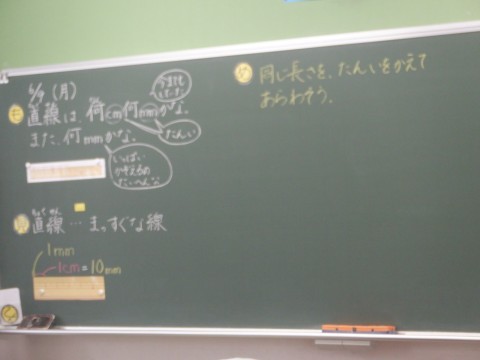 (月)
直線は、何cm何mmかな。
また、何mmかな。
たんい
いっぱい
かぞえるの
たいへんだ
ちょくせん
直線…まっすぐな線
1mm
1cm=10mm
同じ長さを、たんいをかえて
あらわそう。